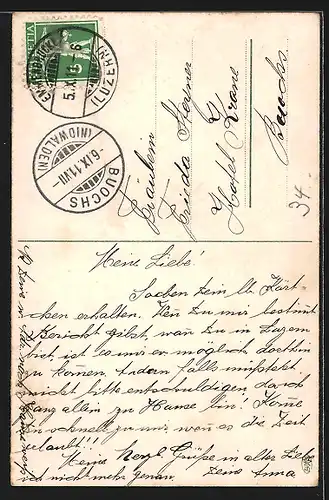 HELVETIA
EMMENBRÜCKE
5.IX. 6
(LUZERN)
BUOCHS
-6.IX.11.VII-
(NIDWALDEN)
Fräulein
Frieda
Hotel Krone
Buochs
34.-
Meine Liebe!
Soeben Dein lb. Kärt-
chen erhalten. Wenn Du mir bestimmt
Bericht gibst, wan Du in Luzern
bist, ist es mir er möglich dorthin
zu kommen. Andern falls müsstest
mich bitte entschuldigen da ich
ganz allein zu Hause bin! Komme
schnell zu mir wenn es die Zeit
erlaubt!!
Meine herzl. Grüsse in alter Liebe
Deine Anna
ich nicht mehr genau.